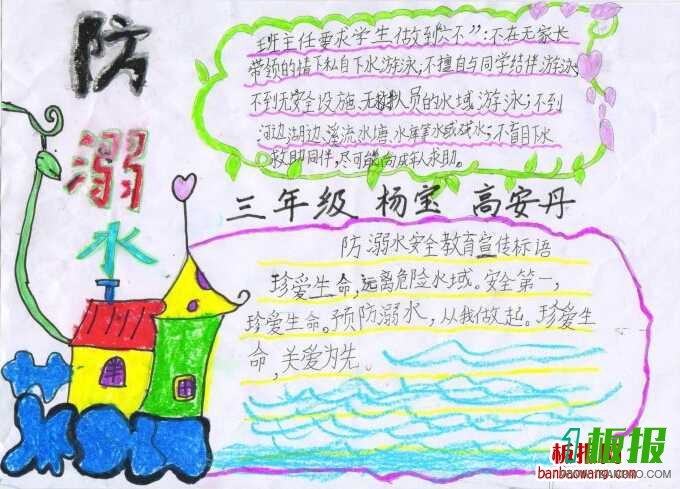 防溺水
班主任要求学生做到"六不":不在无家长
带领的情下私自下水游泳;不擅自与同学结伴游泳
不到无安全设施、无救护人员的水域游泳;不到
河边、湖边、溪流、水塘、水库等水域戏水;不盲目下水
救助同伴,尽可能向成年人求助。
三年级 杨宝 高安丹
防溺水安全教育宣传标语
珍爱生命,远离危险水域。安全第一,
珍爱生命。预防溺水,从我做起。珍爱生
命,关爱为先。
板报